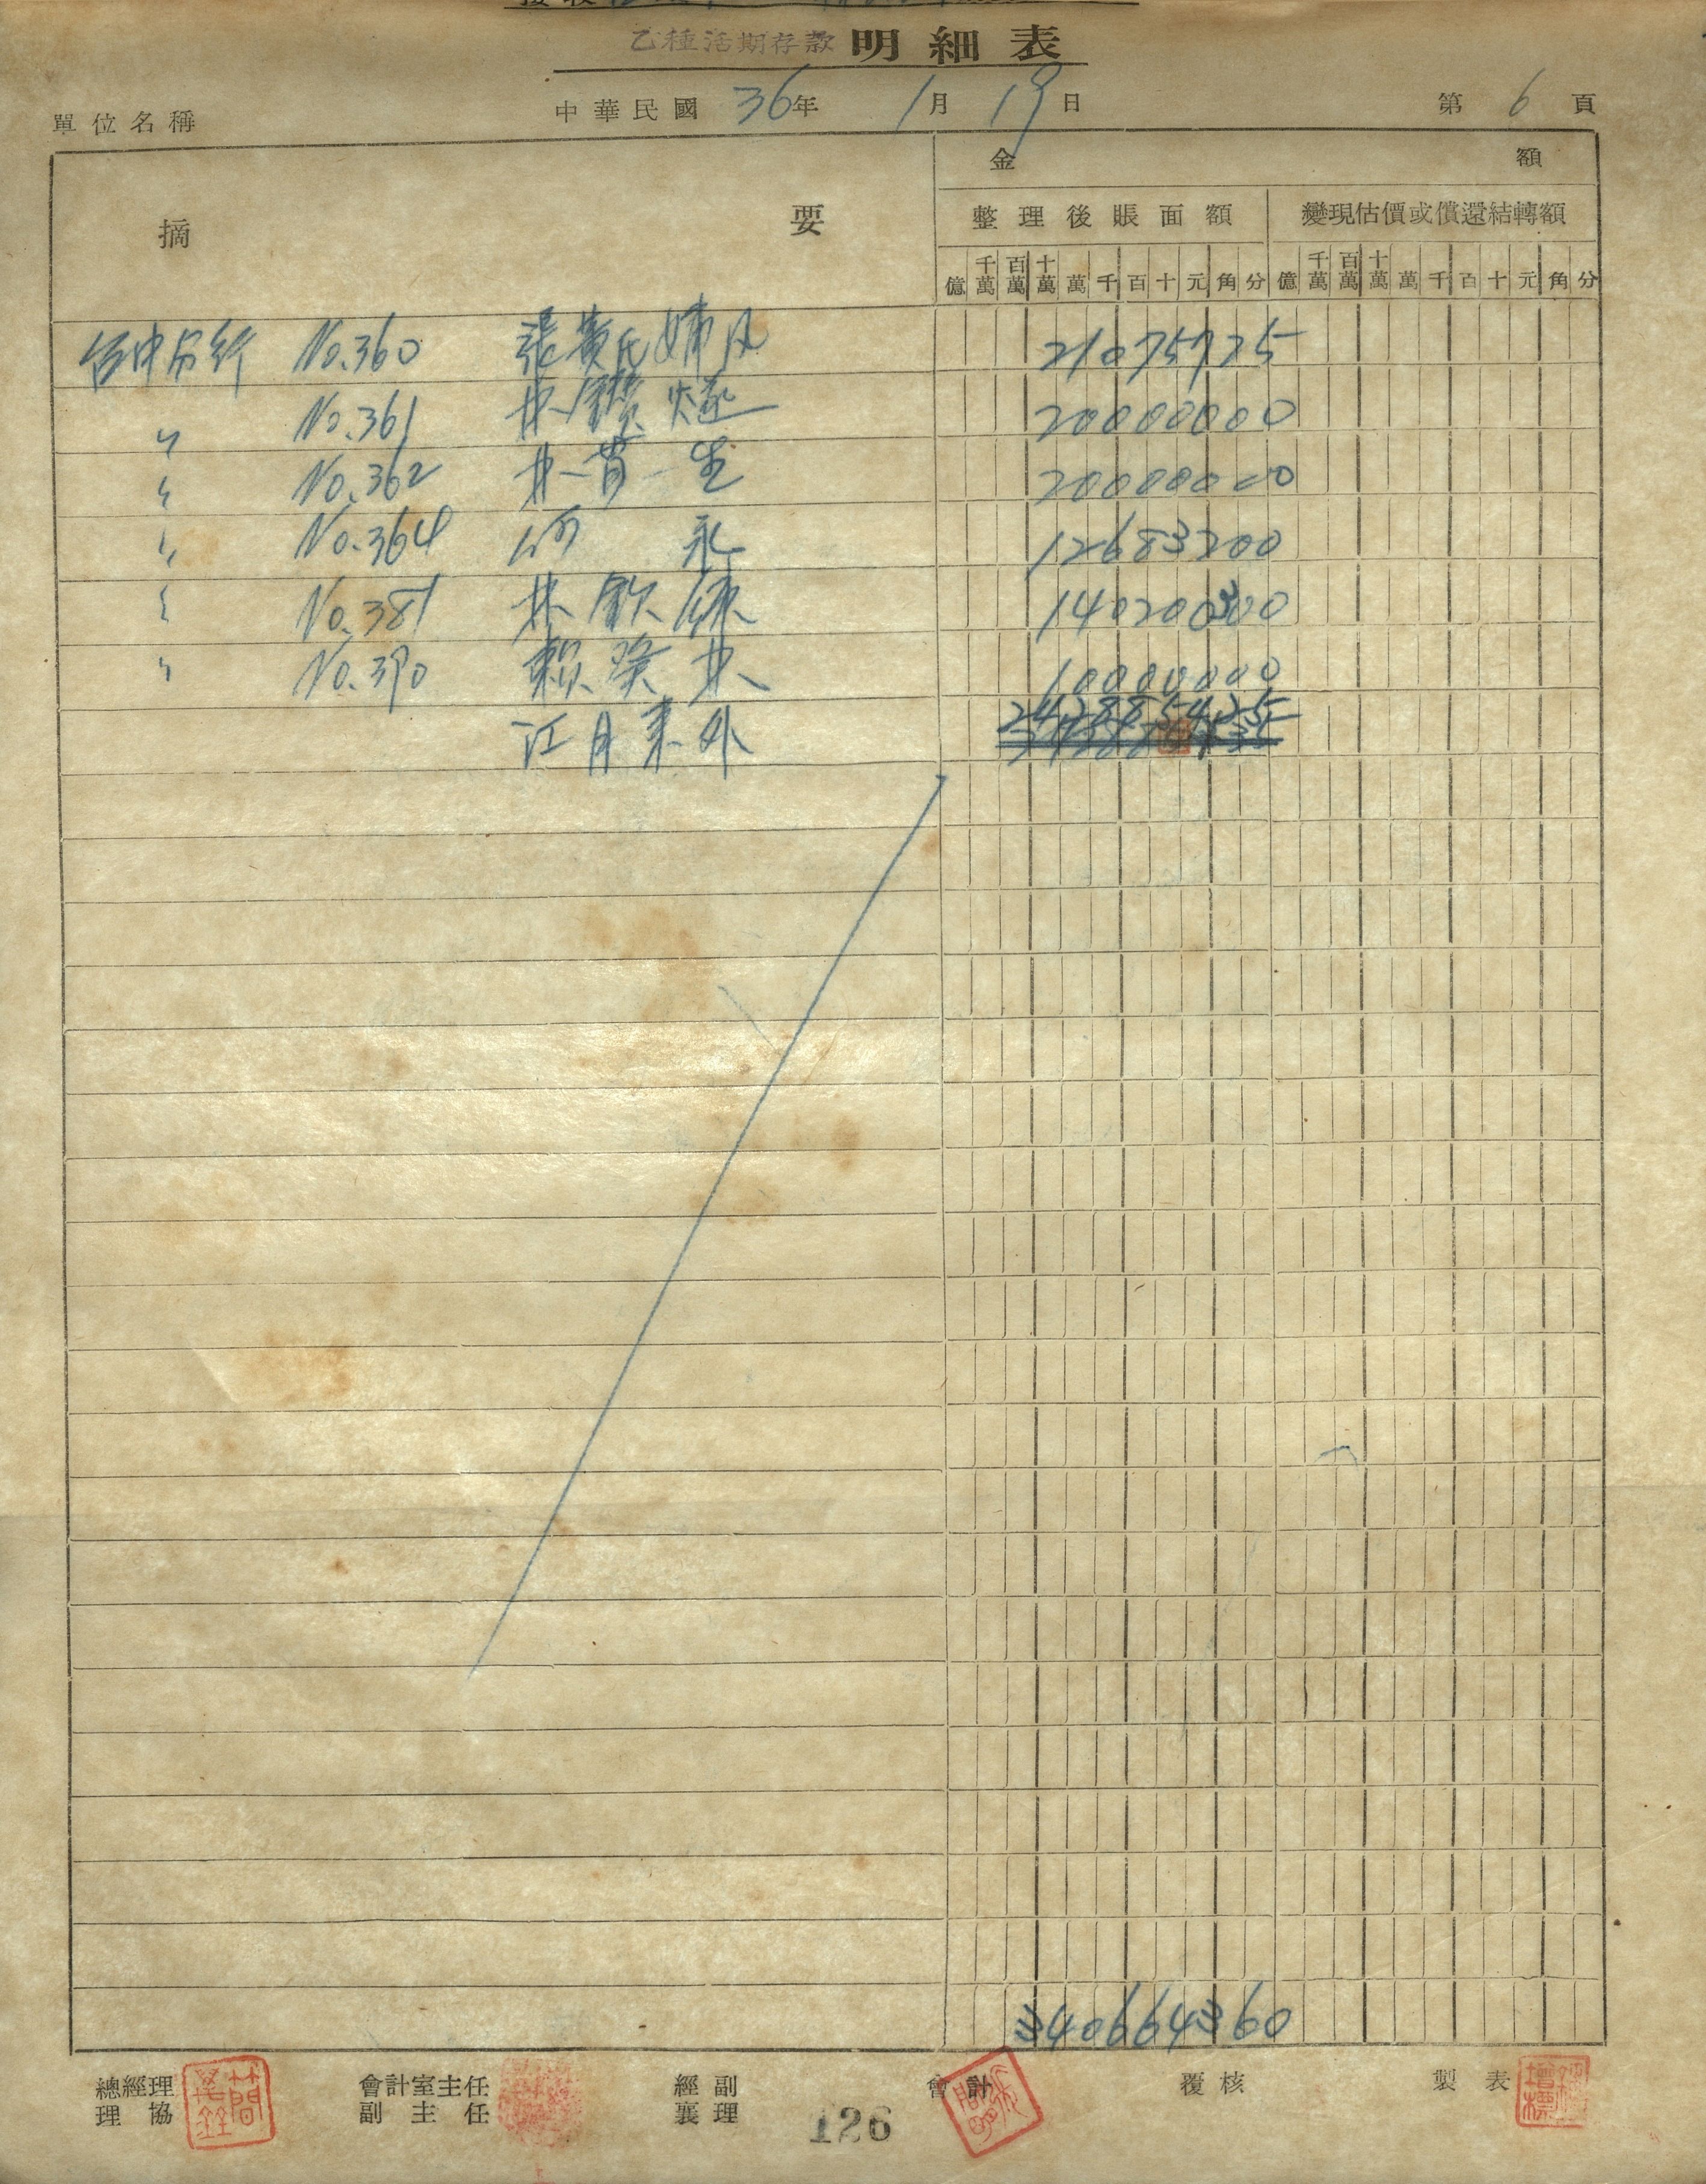 乙種活期存款 明細表
單位名稱 中華民國 36年 1月 19日 第 6 頁
摘 要 金 額
整理後賬面額 變現估價或償還結轉額
億 千萬 百萬 十萬 萬 千 百 十 元 角 分 億 千萬 百萬 十萬 萬 千 百 十 元 角 分
台中分行 No.360 張黃氏 21075725
〃 No.361 林 燧 20000000
〃 No.362 林 生 20000000
〃 No.364 何 永 12683200
〃 No.381 林欽 140200
〃 No.390 賴癸林 10000000
江月來外
40664 60
總經理 會計室主任 經副 會計 覆核 製表
協理 副主任 襄理
126